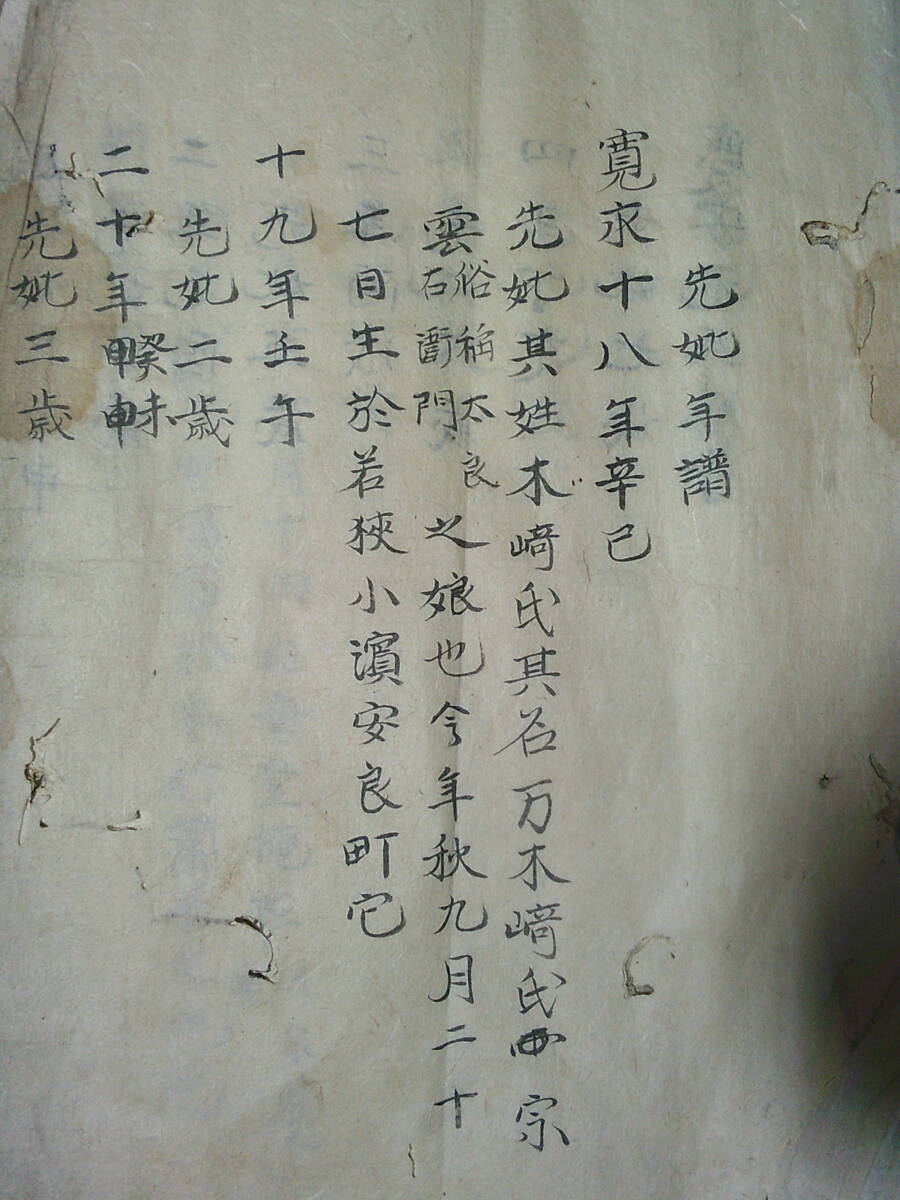 先妣年譜
寛永十八年辛巳
先妣其姓木﨑氏其名万木﨑氏宗
雲俗称太良右衛門之娘也今年秋九月二十
七日生於若狹小濵安良町宅
十九年壬午
先妣二歳
二十年癸未
先妣三歳